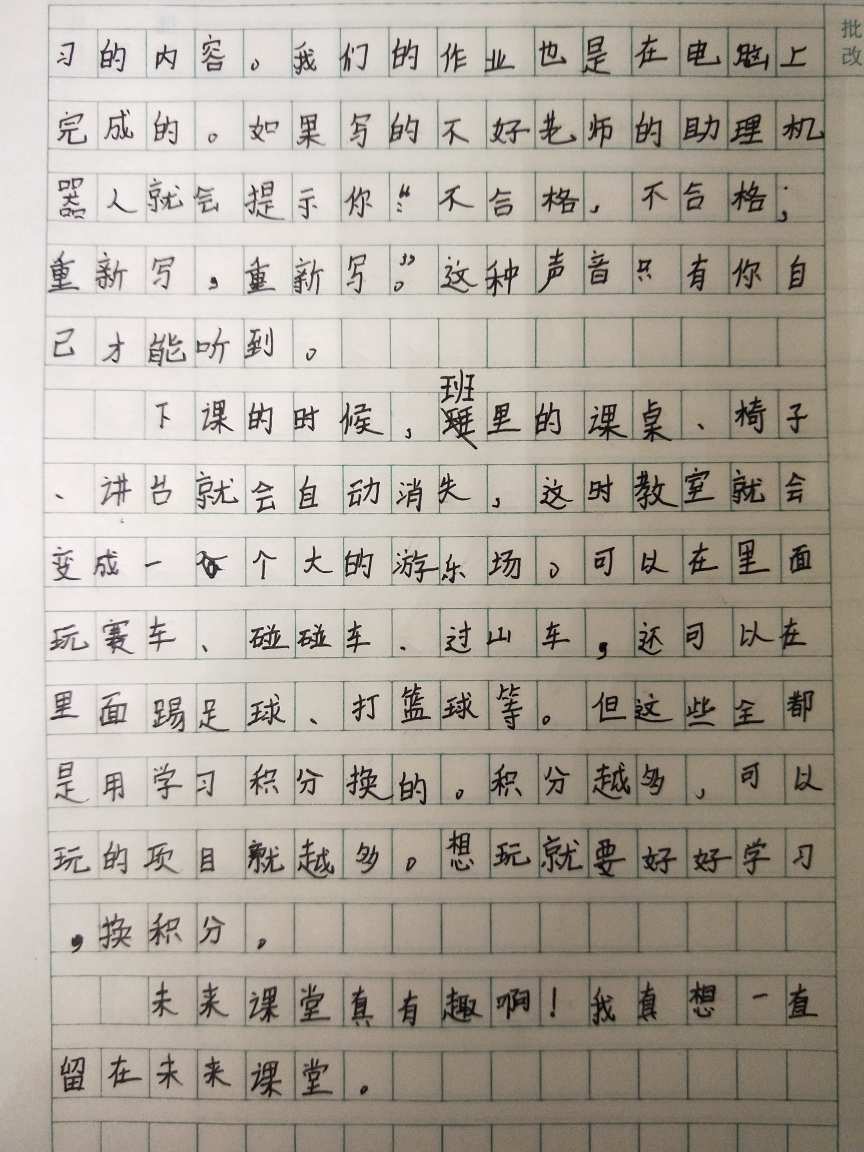 批改
习的内容。我们的作业也是在电脑上
完成的。如果写的不好老师的助理机
器人就会提示你“不合格，不合格；
重新写，重新写。”这种声音只有你自
己才能听到。
下课的时候，班里的课桌、椅子
、讲台就会自动消失，这时教室就会
变成一个大的游乐场。可以在里面
玩赛车、碰碰车、过山车，还可以在
里面踢足球、打篮球等。但这些全都
是用学习积分换的。积分越多，可以
玩的项目就越多。想玩就要好好学习
，换积分。
未来课堂真有趣啊！我真想一直
留在未来课堂。